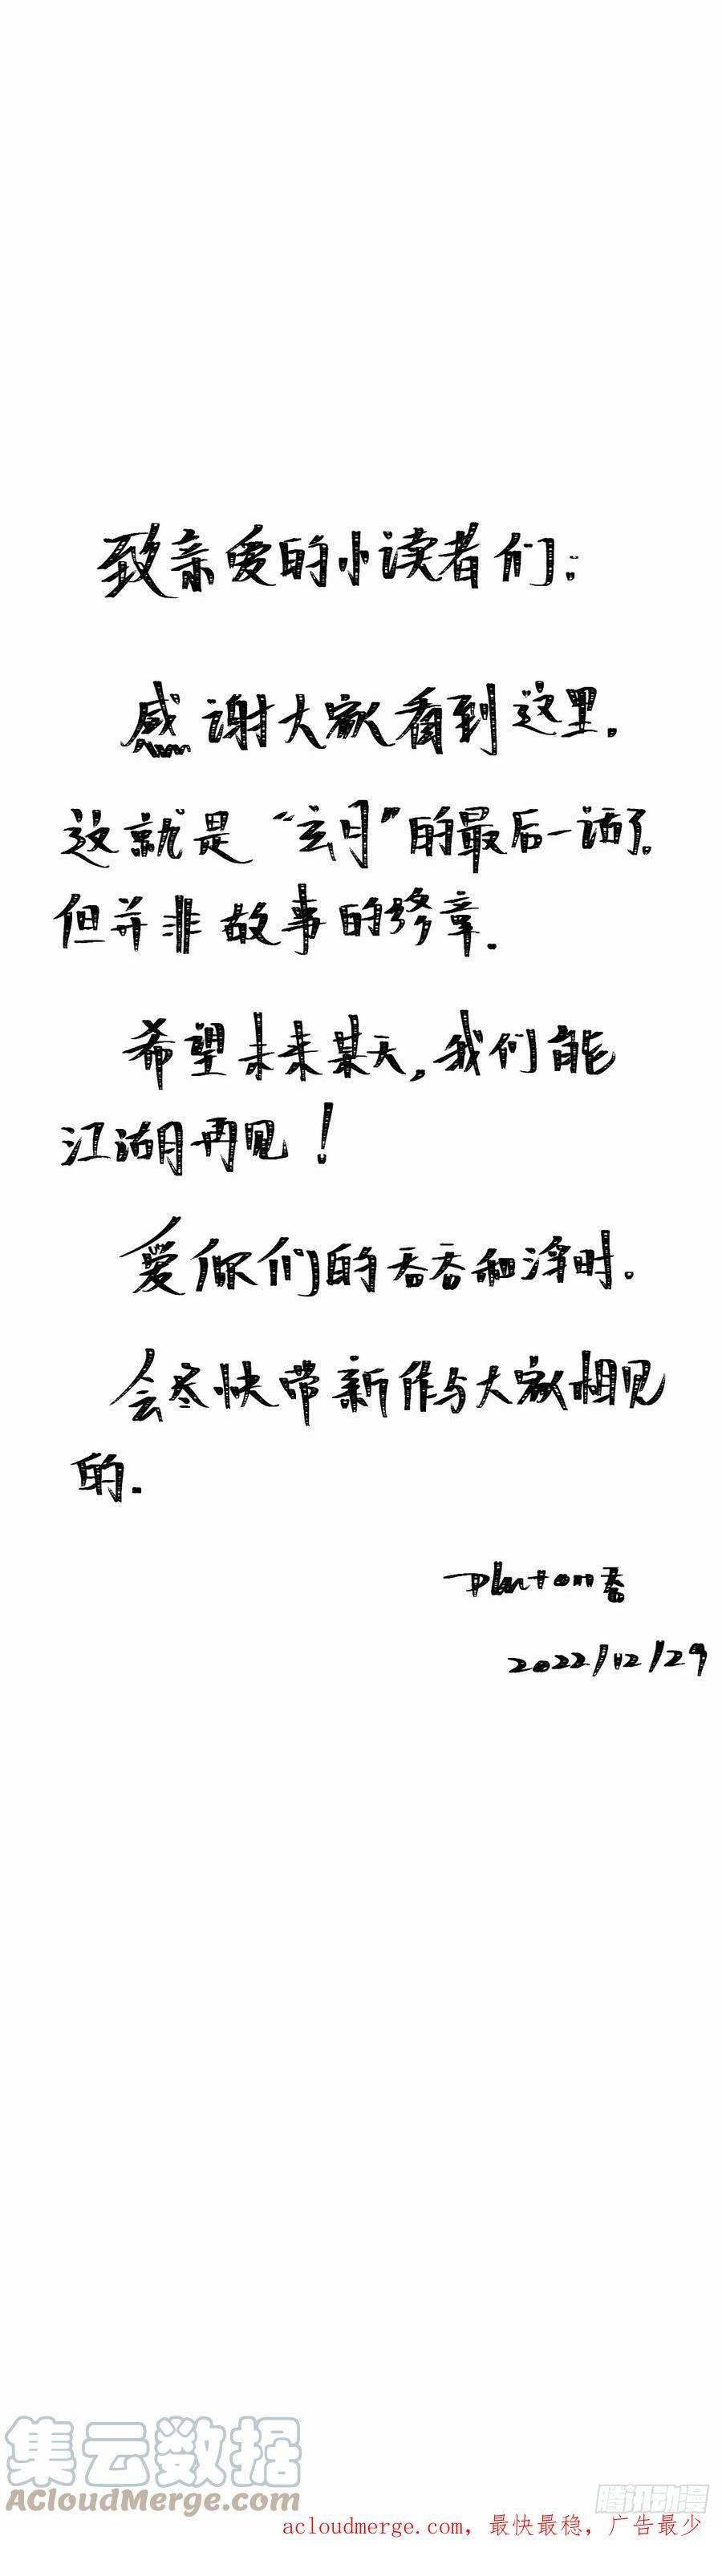 致亲爱的小读者们：
感谢大家看到这里。
这就是“玄月”的最后一话了。
但并非故事的终章。
希望未来某天，我们能
江湖再见！
爱你们的吞吞和浮时。
会尽快带新作与大家相见
的。
Pluton吞
2022/12/29
集云数据
AcloudMerge.com
腾讯动漫
acloudmerge.com，最快最稳，广告最少